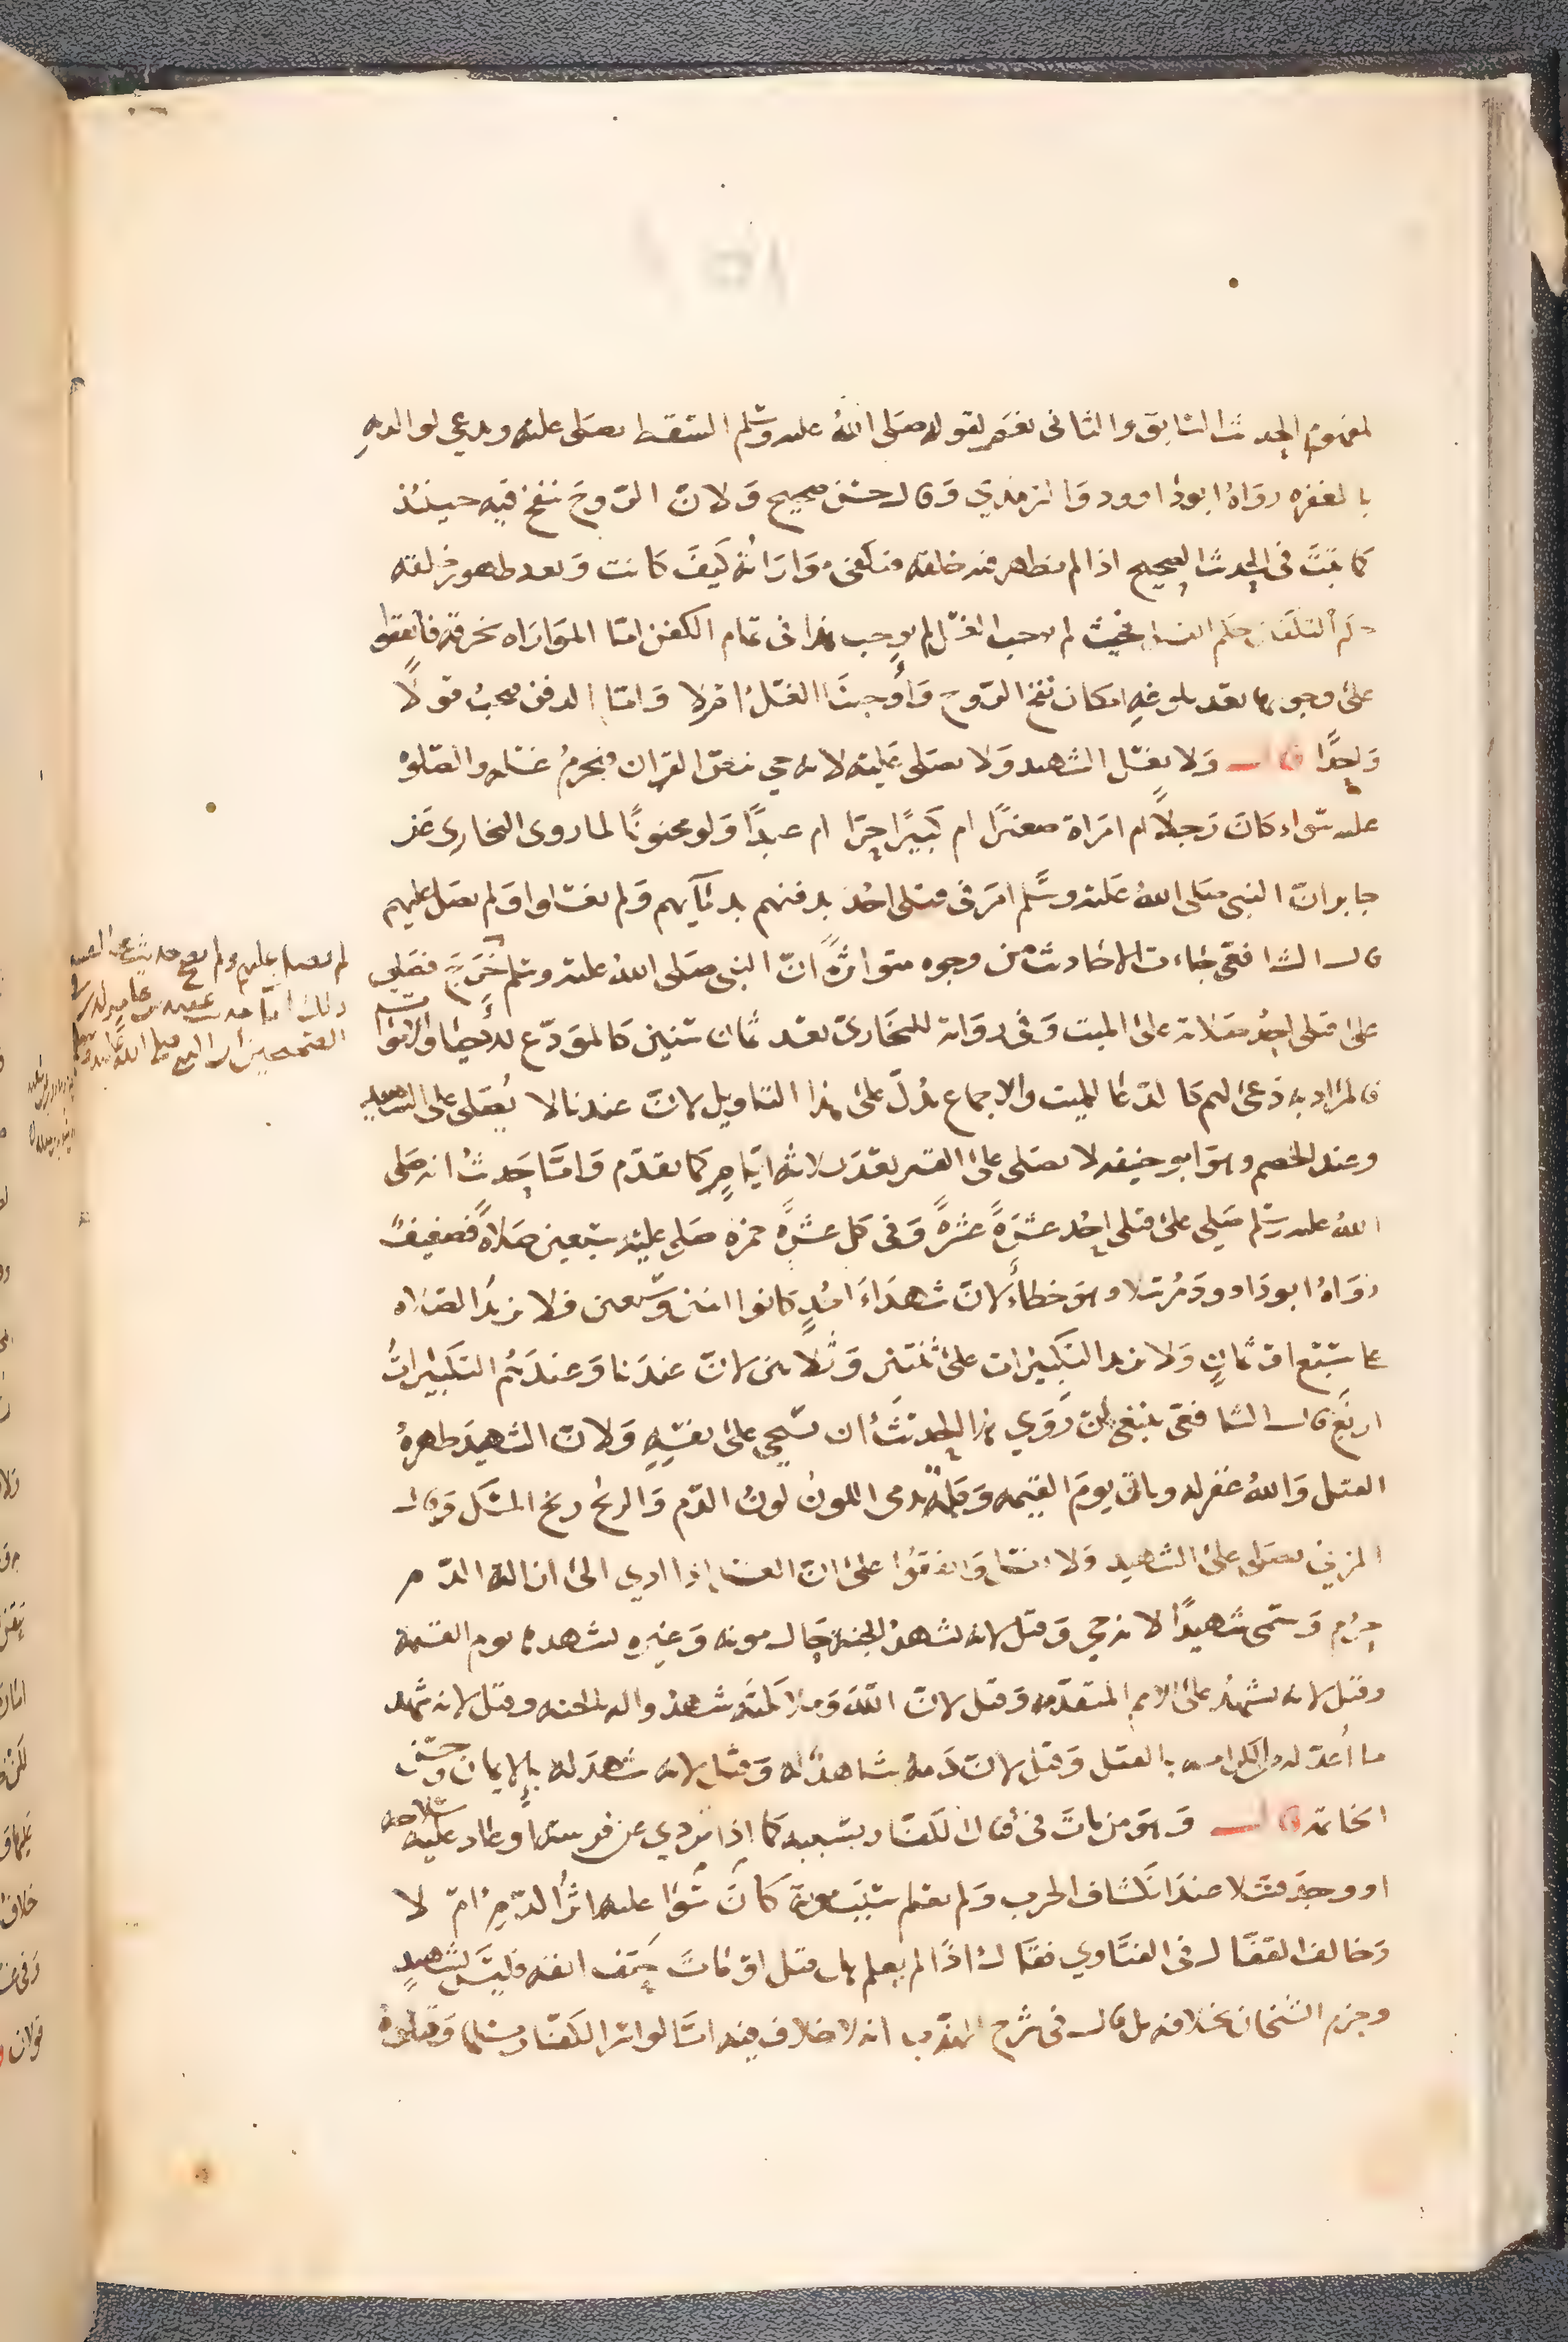 لمفهوم الحديث السابق والثاني نعم لقوله صلى الله عليه وسلم السقط يصلى عليه ويدعى لوالديه
بالمغفرة رواه ابو داوود والترمذي وقال حسن صحيح ولان الروح نفخ فيه حينئذ
كما ثبت في الحديث الصحيح اذا لم يظهر فيه خلقة فيكفي مواراته كيف كانت وبعد ظهور خلقة
حكم التكفين حكم الغسل فحيث لم يوجب الغسل لم يوجب هذا في تمام الكفن امّا المواراه بخرقة فاتفقوا
على وجوبها بعد بلوغه امكان نفخ الروح وأوجبنا الغسل ام لا وامّا الدفن فيجب قولًا
واحدًا قال ولا يغسل الشهيد ولا يصلى عليه لانه حي بنص القران فيحرم غسله والصلوة
عليه سواء كان رجلًا ام امراة صغيرًا ام كبيرًا حرّا ام عبدًا ولو مجنونًا لما روى البخاري عن
جابر ان النبي صلى الله عليه وسلم امر في قتلى احد بدفنهم بدمائهم ولم يغسلوا ولم يصل عليهم
قال الشافعي جاءت الاحاديث من وجوه متواترة ان النبي صلى الله عليه وسلم خرج فصلى
على قتلى احد صلاته على الميت وفي رواية للبخاري بعد ثمان سنين كالمودّع للاحياء والاموات
فالمراد به دعى لهم كالدعاء للميت والاجماع يدل على هذا التاويل لان عندنا لا يُصلى على الشهيد
وعند الخصم وهو ابو حنيفه لا يصلى على القبر بعد ثلاثة ايّام كما تقدّم وامّا حديث انه صلى
الله عليه وسلم صلى على قتلى احد عشرة عشرةً وفي كل عشرة حمزه صلى عليه سبعين صلاةً فضعيف
رواه ابو داوود مرسلا وهو خطاء لان شهداء احد كانوا اثنين وسبعين فلا تزيد الصلاه
على سبع او ثمان ولا تزيد التكبيرات على ثنتين وثلاثين لان عندنا وعندهم التكبيرات
اربع قال الشافعي ينبغي لمن روى هذا الحديث ان يستحي على نفسه ولان الشهيد طهره
القتل والله غفر له وياتي يوم القيمه وكلمه يدمى اللون لون الدّم والريح ريح المسك وقال
المزني يصلى على الشهيد ولا يغسل واتفقوا على ان الغسل اذا ادي الى ازالة الدّم
حرم وسمّي شهيدًا لانه حي وقيل لانه يشهد الجنة حال موته وغيره يشهدها يوم القيمة
وقيل لانه يشهد على الامم المتقدّمة وقيل لان الله وملائكته شهدوا له بالجنه وقيل لانه شهد
ما أُعدّ له من الكرامه بالقتل وقيل لان دمه شاهد له وقيل لانه شهد له بالايمان وحسن
الخاتمة قال وهو من مات في قتال الكفار بسببه كما اذا تردي عن فرسه او عاد عليه سلاحه
او وجد قتيلا عند انكشاف الحرب ولم يعلم سبب موته كان سوا عليه اثر الدّم ام لا
وخالف القفال في الفتاوي فقال اذا لم يعلم هل قتل او مات حتف انفه فليس بشهيد
وجزم الشيخان بخلافه بل قال في شرح المهذّب انه لا خلاف فيه امّا لو اسر الكفار مسلما وقتلوه
لم يصل عليهم ولم يصح حديث
ذلك امّا حديث عقبه بن عامر
الصحيحين ان النبي صلى الله عليه وسلم